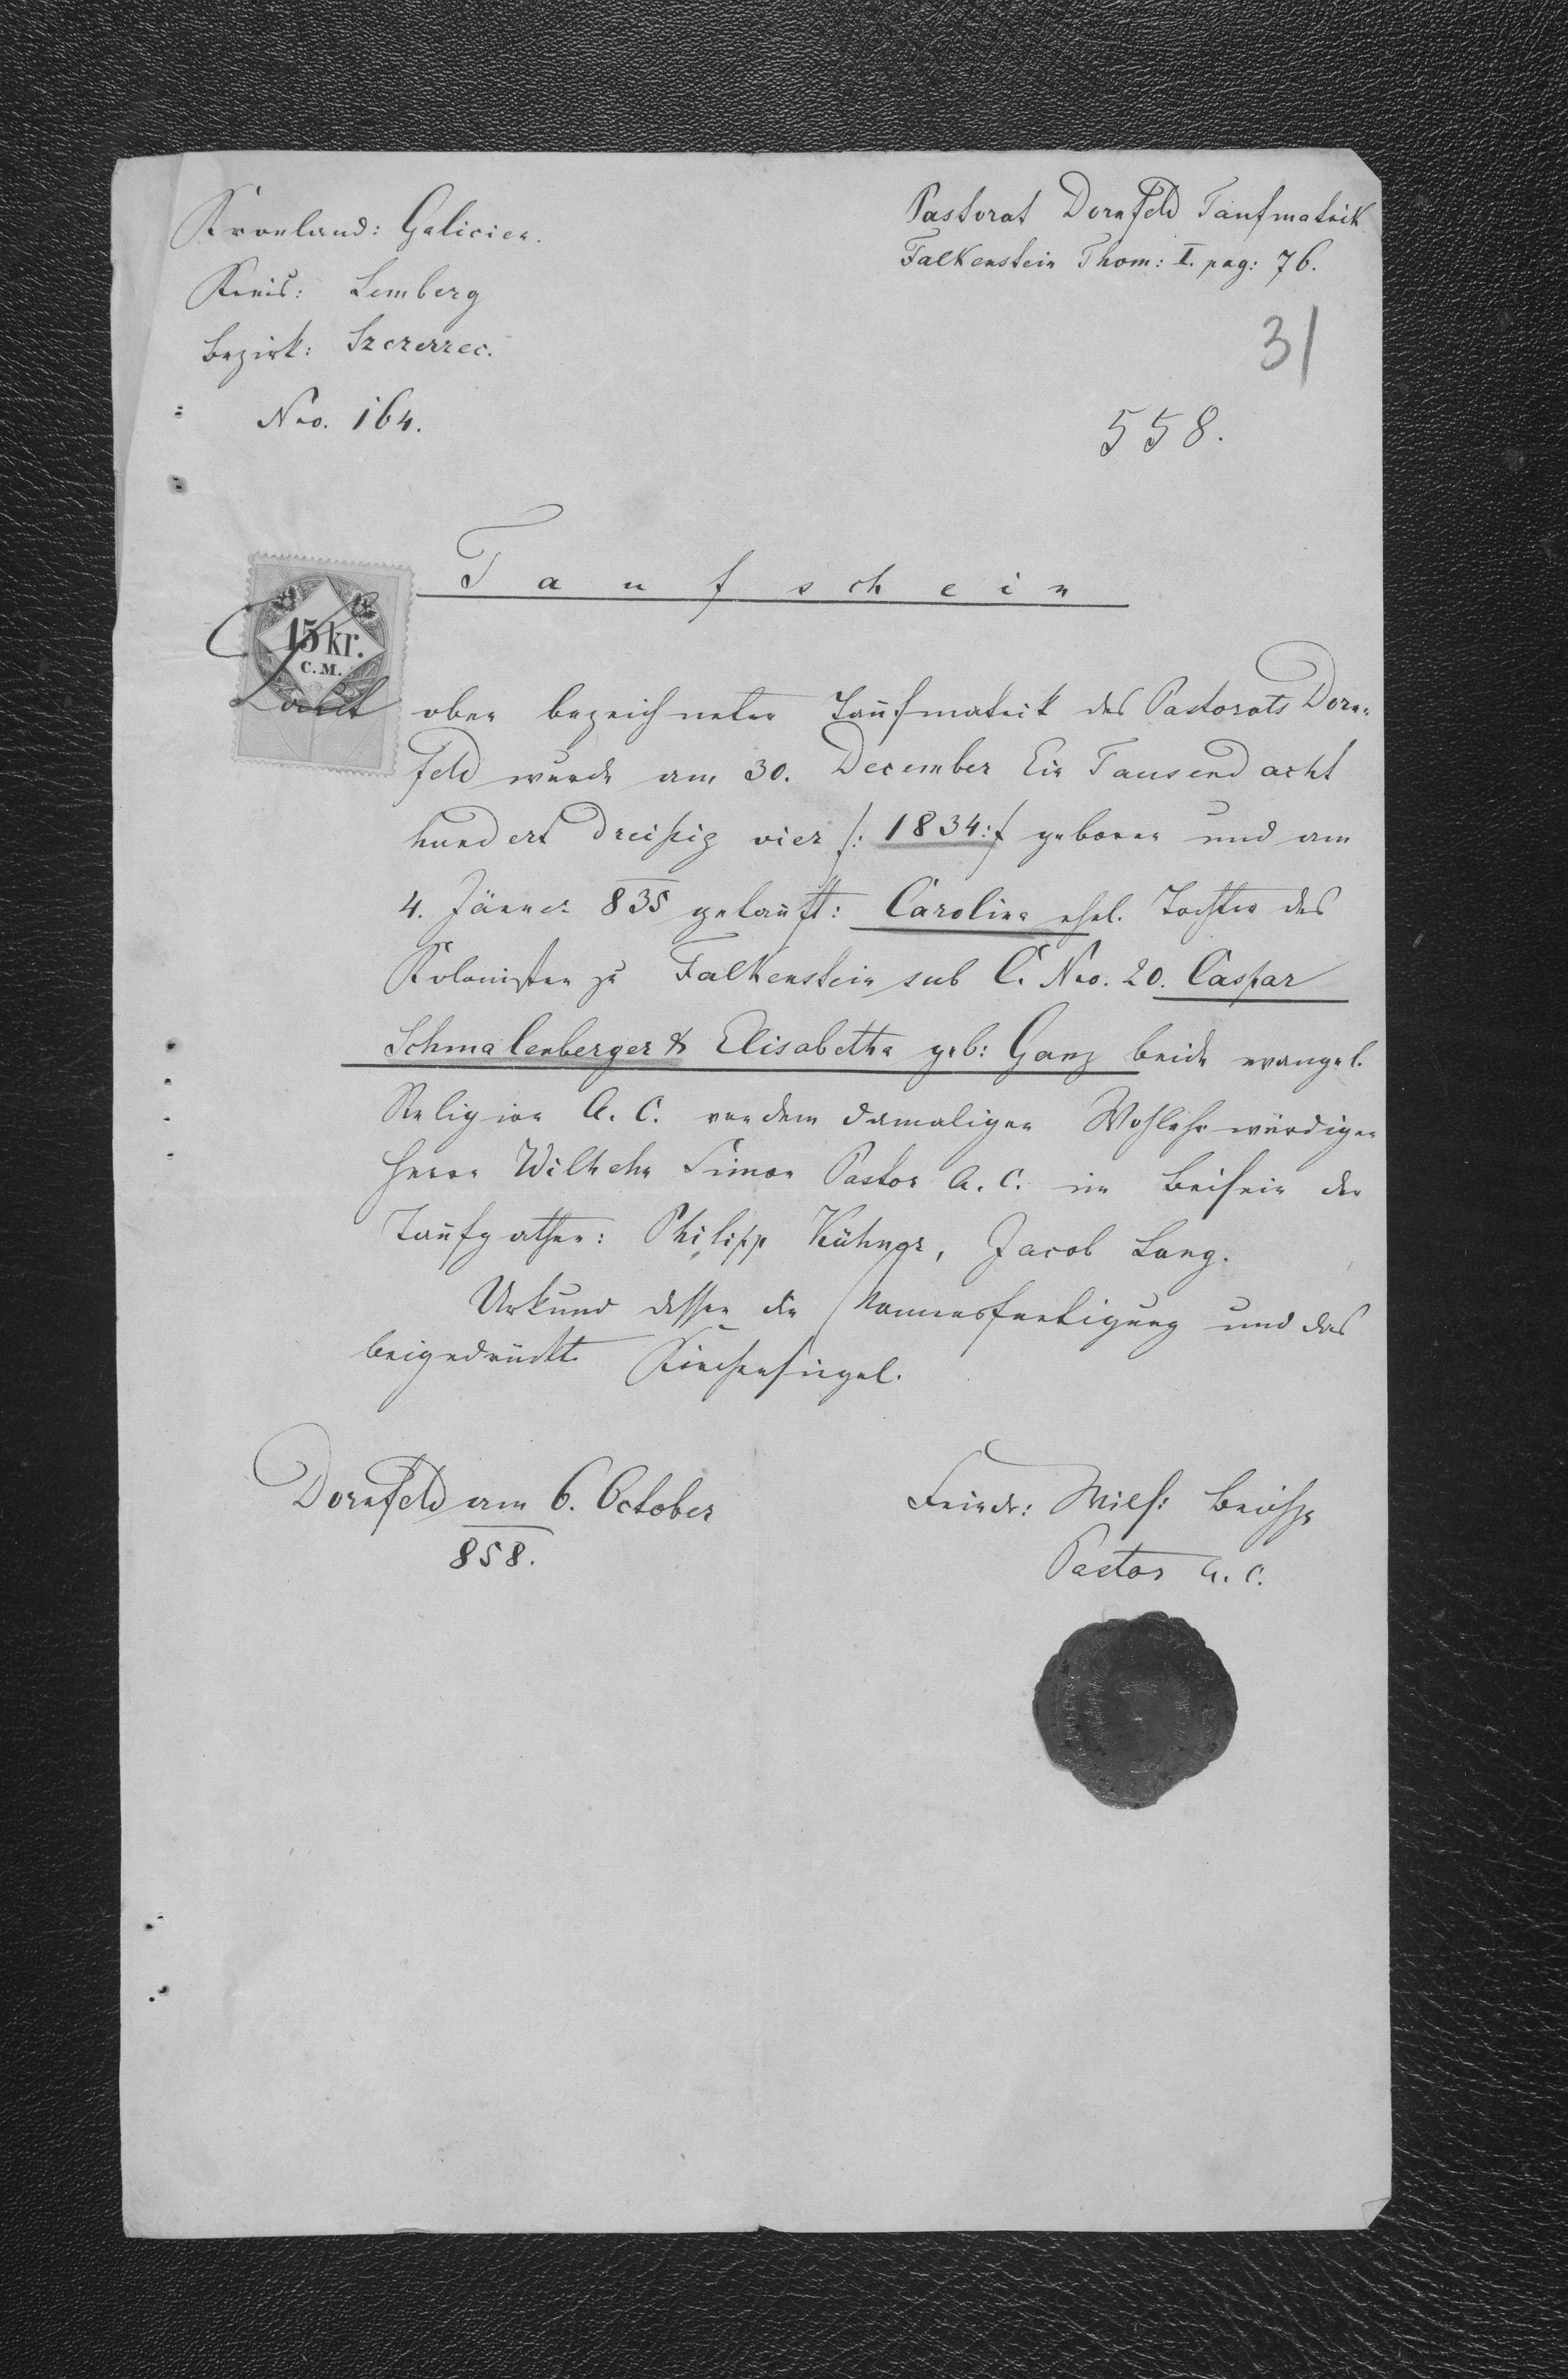 Kronland: Galicien.
Kreis: Lemberg
Bezirk: Szczerzec.
Nro. 164.
Pastorat Dornfeld Taufmatrik
Falkenstein Thom: I. pag: 76.
31
558.
Taufschein
15 kr.
C.M.
Laut oben bezeichneter Taufmatrik des Pastorats Dorn-
feld wurde am 30. December Ein Tausend acht
hundert dreißig vier /: 1834 :/ geboren und am
4. Jänner 835 getauft: Carolina ehel. Tochter des
Kolonisten zu Falkenstein sub C. Nro. 20. Caspar
Schmalenberger & Elisabetha geb: Ganz beide evangel.
Religion A. C. von dem damaligen Wohlehrwürdigen
Herrn Wilhelm Simon Pastor A. C. im Beisein der
Taufpathen: Philipp Kühner, Jacob Lang.
Urkund dessen die Namensfertigung und das
beigedrückte Kirchensiegel.
Dornfeld am 6. October
858.
Friedr: Wilh:
Pastor A. C.